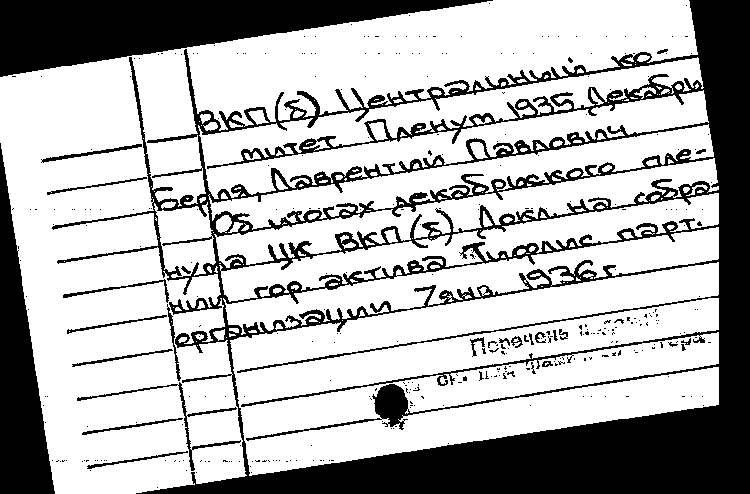 ВКП(б). Центральный ко-
митет. Пленум. 1935. Декабрь
Берия, Лаврентий Павлович.
Об итогах декабрьского пле-
нума ЦК ВКП(б). Докл. на собра-
нии гор. актива Тифлис. парт.
организации 7 янв. 1936 г.
Перечень изданий
см. под фамилией автора